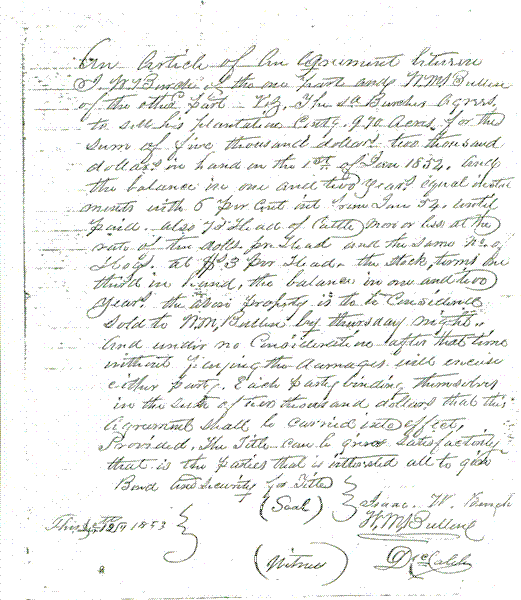 An Article of An Agreement between
I. W. Burch of the one part and W. M. Bullen
of the other Part Viz. The sd Burch Agrees
to sell his plantation Contg. 970 Acres, for the
Sum of five thousand dollars two thousand
dollars in hand in the 1st of Jan 1854. And
the balance in one and two Years equal instal
ments with 6 Per Cent int from Jan 54 until
paid. also 75 Head of Cattle more or less at the
rate of ten dolls. pr Head and the same No. of
Hogs. at $3 Per Head. the stock, terms one
third in hand, the balance in one and two
Years, the above property is to be Considered
Sold to W. M. Bullen by thursday night.
And under no Consideration after that time
without paying the damages will excuse
either party. Each party binding themselves
in the sum of thousand dollars that this
Agreement shall be carried into effect,
Provided, The Title can be given satisfactory
that is the parties that is interested all to give
Bond and Security for Title
(Seal) Isaac. W. Burch
W. M. Bullen
This 1853
(Witness)